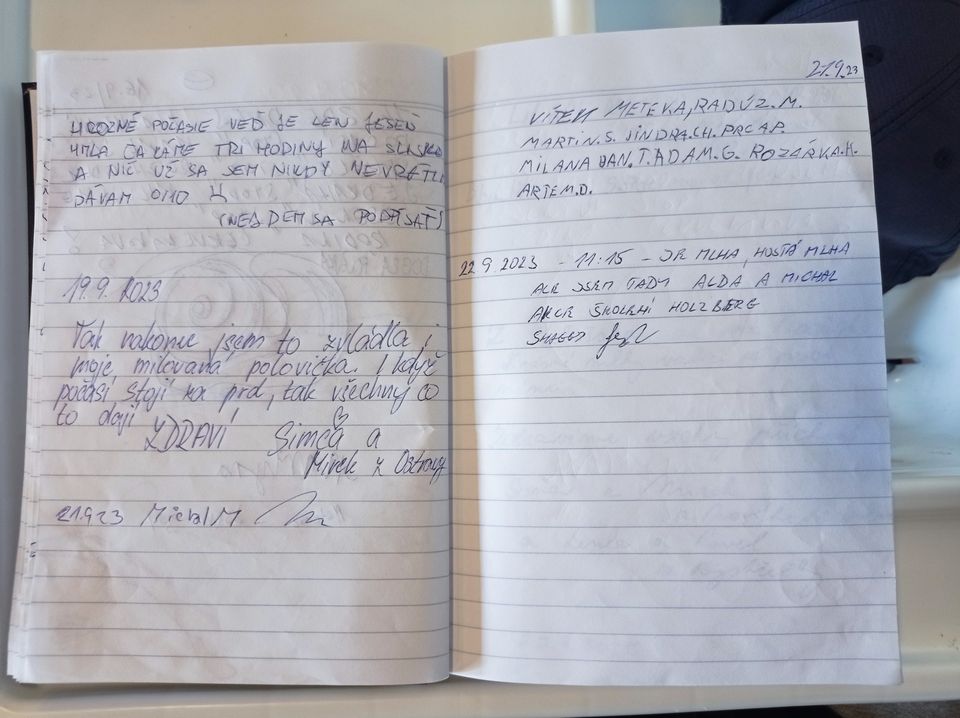 HROZNÉ POČASIE VEĎ JE LEN JESEŇ
HMLA ČAKÁME TRI HODINY NA SLNKO
A NIČ UŽ SA SEM NIKDY NEVRÁTIM
DÁVAM 0/10
(NEJDEM SA PODPÍSAŤ)
19.9.2023
Tak nakonec jsem to zvládla i
moje milovaná polovička. I když
počasí stojí za prd, tak všechny co
to dají
ZDRAVÍ Simča a
Mirek z Ostravy
21.9.23 Michal M
21.9.23
VÍTEK METEKA, RADÚZ.M.
MARTIN.S. JINDRA.CH. P.
MILANA DAN.T. ADAM.G. ROZÁRKA.H.
ARTEM.D.
22.9.2023 - 11:15 - JE MLHA, HUSTÁ MLHA
ALE JSEM TADY ALDA A MICHAL
AKCE ŠKOLENÍ HOLZBERG